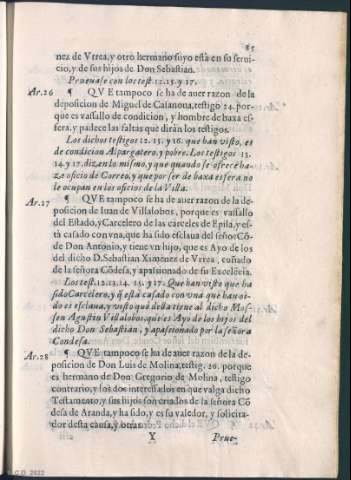 85
nez de Vrrea, y otro hermano suyo está en su serui-
cio, y de sus hijos de Don Sebastian.
Prueuase con los test. 12. 15. y 17.
Ar. 26 ¶ QVE tampoco se ha de auer razon de la
deposicion de Miguel de Casanoua, testigo 24. por-
que es vassallo de condicion, y hombre de baxa es-
fera, y padece las faltas que dirán los testigos.
Los dichos testigos 12. 15. y 16. que han visto, es
de condicion Alpargatero, y pobre. Los testigos 13.
14. y 17. dizen lo mismo, y que quando se ofrece ha-
ze oficio de Correo, y que por ser de baxa esfera no
le ocupan en los oficios de la Villa.
Ar. 27 ¶ QVE tampoco se ha de auer razon de la de-
posicion de Iuan de Villalobos, porque es vassallo
del Estado, y Carcelero de las carceles de Epila, y es-
tà casado con vna, que ha sido esclaua del señor Cõ-
de Don Antonio, y tiene vn hijo, que es Ayo de los
del dicho D. Sebastian Ximenez de Vrrea, cuñado
de la señora Cõdesa, y apasionado de su Excelẽcia.
Los test. 12. 13. 14. 15. y 17. Que han visto que ha
sido Carcelero, y q̃ està casado con vna que han oi-
do es esclaua, y visto que della tiene al dicho Mos-
sen Agustin Villalobos, que es Ayo de los hijos del
dicho Don Sebastian, y apasionado por la señora
Condesa.
Ar. 28 ¶ QVE tampoco se ha de auer razon de la de-
posicion de Don Luis de Molina, testig. 26. porque
es hermano de Don Gregorio de Molina, testigo
contrario, y los dos interessados en que valga dicho
Testamento, y sus hijos son criados de la señora Cõ
desa de Aranda, y ha sido, y es su valedor, y solicita-
dor desta causa, y otras
Y Prue-
C.D. 2622